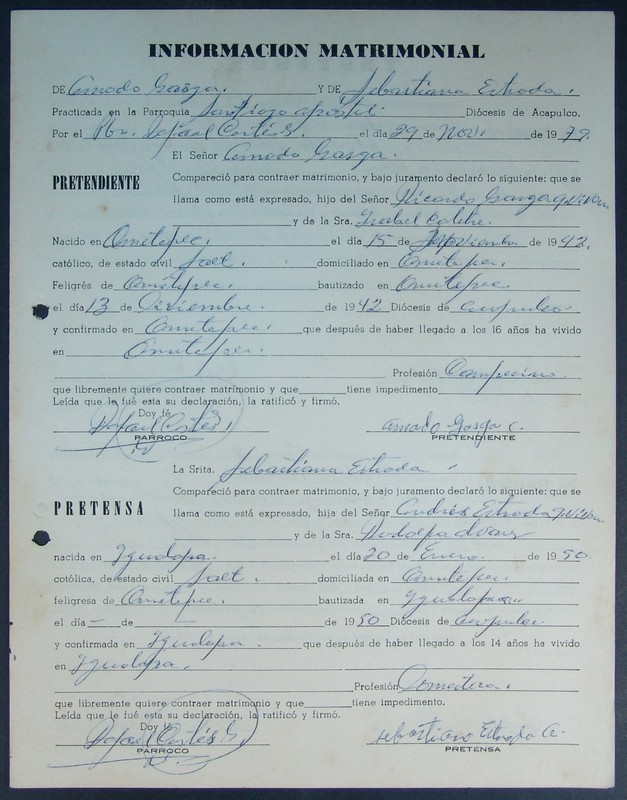 INFORMACION MATRIMONIAL
DE Amado Gasga. Y DE Sebastiana Estrada.
Practicada en la Parroquia Santiago apóstol Diócesis de Acapulco,
Por el Pbr. Rafael Cortés G. el día 29 de Nov. de 1979.
El Señor Amado Gasga.
PRETENDIENTE
Compareció para contraer matrimonio, y bajo juramento declaró lo siguiente: que se
llama como está expresado, hijo del Señor Ricardo Gasga
y de la Sra. Isabel
Nacido en Ometepec. el día 15 de Noviembre de 1942.
católico, de estado civil Solt. domiciliado en Ometepec.
Feligrés de Ometepec. bautizado en Ometepec
el día 13 de Diciembre. de 1942 Diócesis de Acapulco
y confirmado en Ometepec. que después de haber llegado a los 16 años ha vivido
en Ometepec.
Profesión Campesino.
que libremente quiere contraer matrimonio y que tiene impedimento
Leída que le fué esta su declaración, la ratificó y firmó,
Doy fé
Rafael Cortés G. Amado Gasga C.
PARROCO PRETENDIENTE
La Srita. Sebastiana Estrada.
PRETENSA
Compareció para contraer matrimonio, y bajo juramento declaró lo siguiente: que se
llama como está expresado, hija del Señor Andrés Estrada
y de la Sra.
nacida en Igualapa. el día 20 de Enero. de 1950.
cotólica, de estado civil Solt. domiciliada en Ometepec.
feligresa de Ometepec. bautizada en Igualapa.
el día — de — de 1950 Diócesis de Acapulco
y confirmada en Igualapa. que después de haber llegado a los 14 años ha vivido
en Igualapa.
Profesión Doméstica.
que libremente quiere contraer matrimonio y que tiene impedimento.
Leída que le fué esta su declaración, la ratificó y firmó.
Doy fé
Rafael Cortés G. Sebastiana Estrada A.
PARROCO PRETENSA